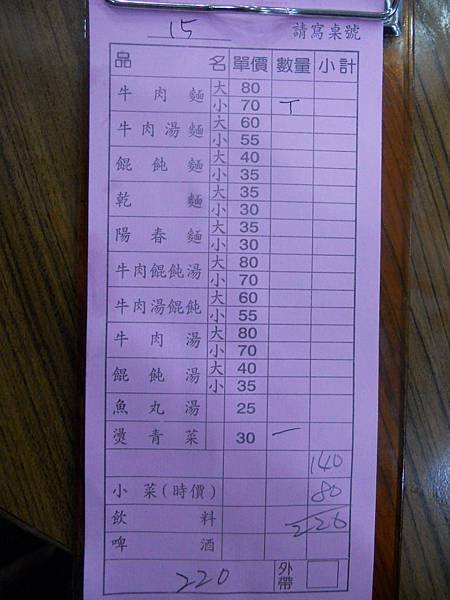 15 請寫桌號
品名 單價 數量 小計
牛肉麵 大 80
小 70 丅
牛肉湯麵 大 60
小 55
餛飩麵 大 40
小 35
乾麵 大 35
小 30
陽春麵 大 35
小 30
牛肉餛飩湯 大 80
小 70
牛肉湯餛飩 大 60
小 55
牛肉湯 大 80
小 70
餛飩湯 大 40
小 35
魚丸湯 25
燙青菜 30 一
140
小菜(時價) 80
飲料 220
啤酒
220 外帶